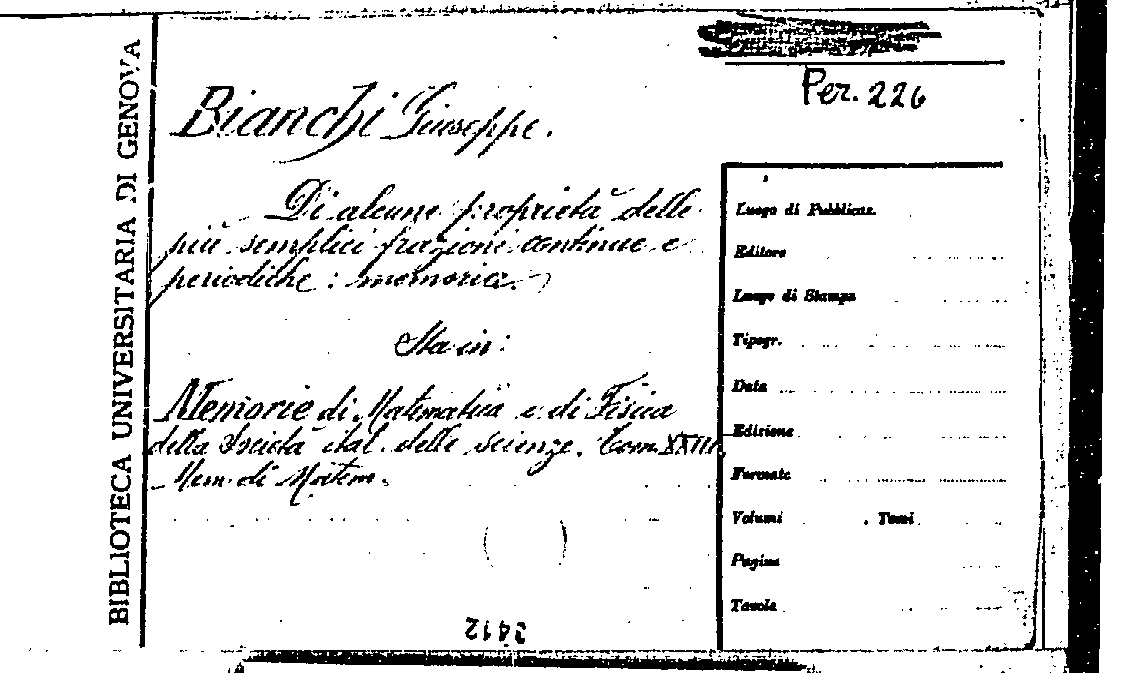 BIBLIOTECA UNIVERSITARIA DI GENOVA
Per. 226
Bianchi Giuseppe.
Di alcune proprietà delle
più semplici frazioni continue e
periodiche: memoria.
Sta in:
Memorie di Matematica e di Fisica
della Società ital. delle scienze. Tom. XXIII.
Mem. di Matem.
( )
Luogo di Pubblicaz.
Editore
Luogo di Stampa
Tipogr.
Data
Edizione
Formato
Volumi . Tomi
Pagine
Tavole
2412